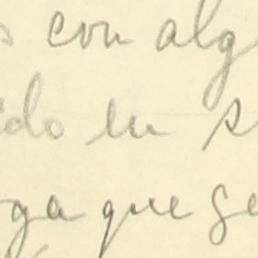 s con alg
ido en s
ga que se